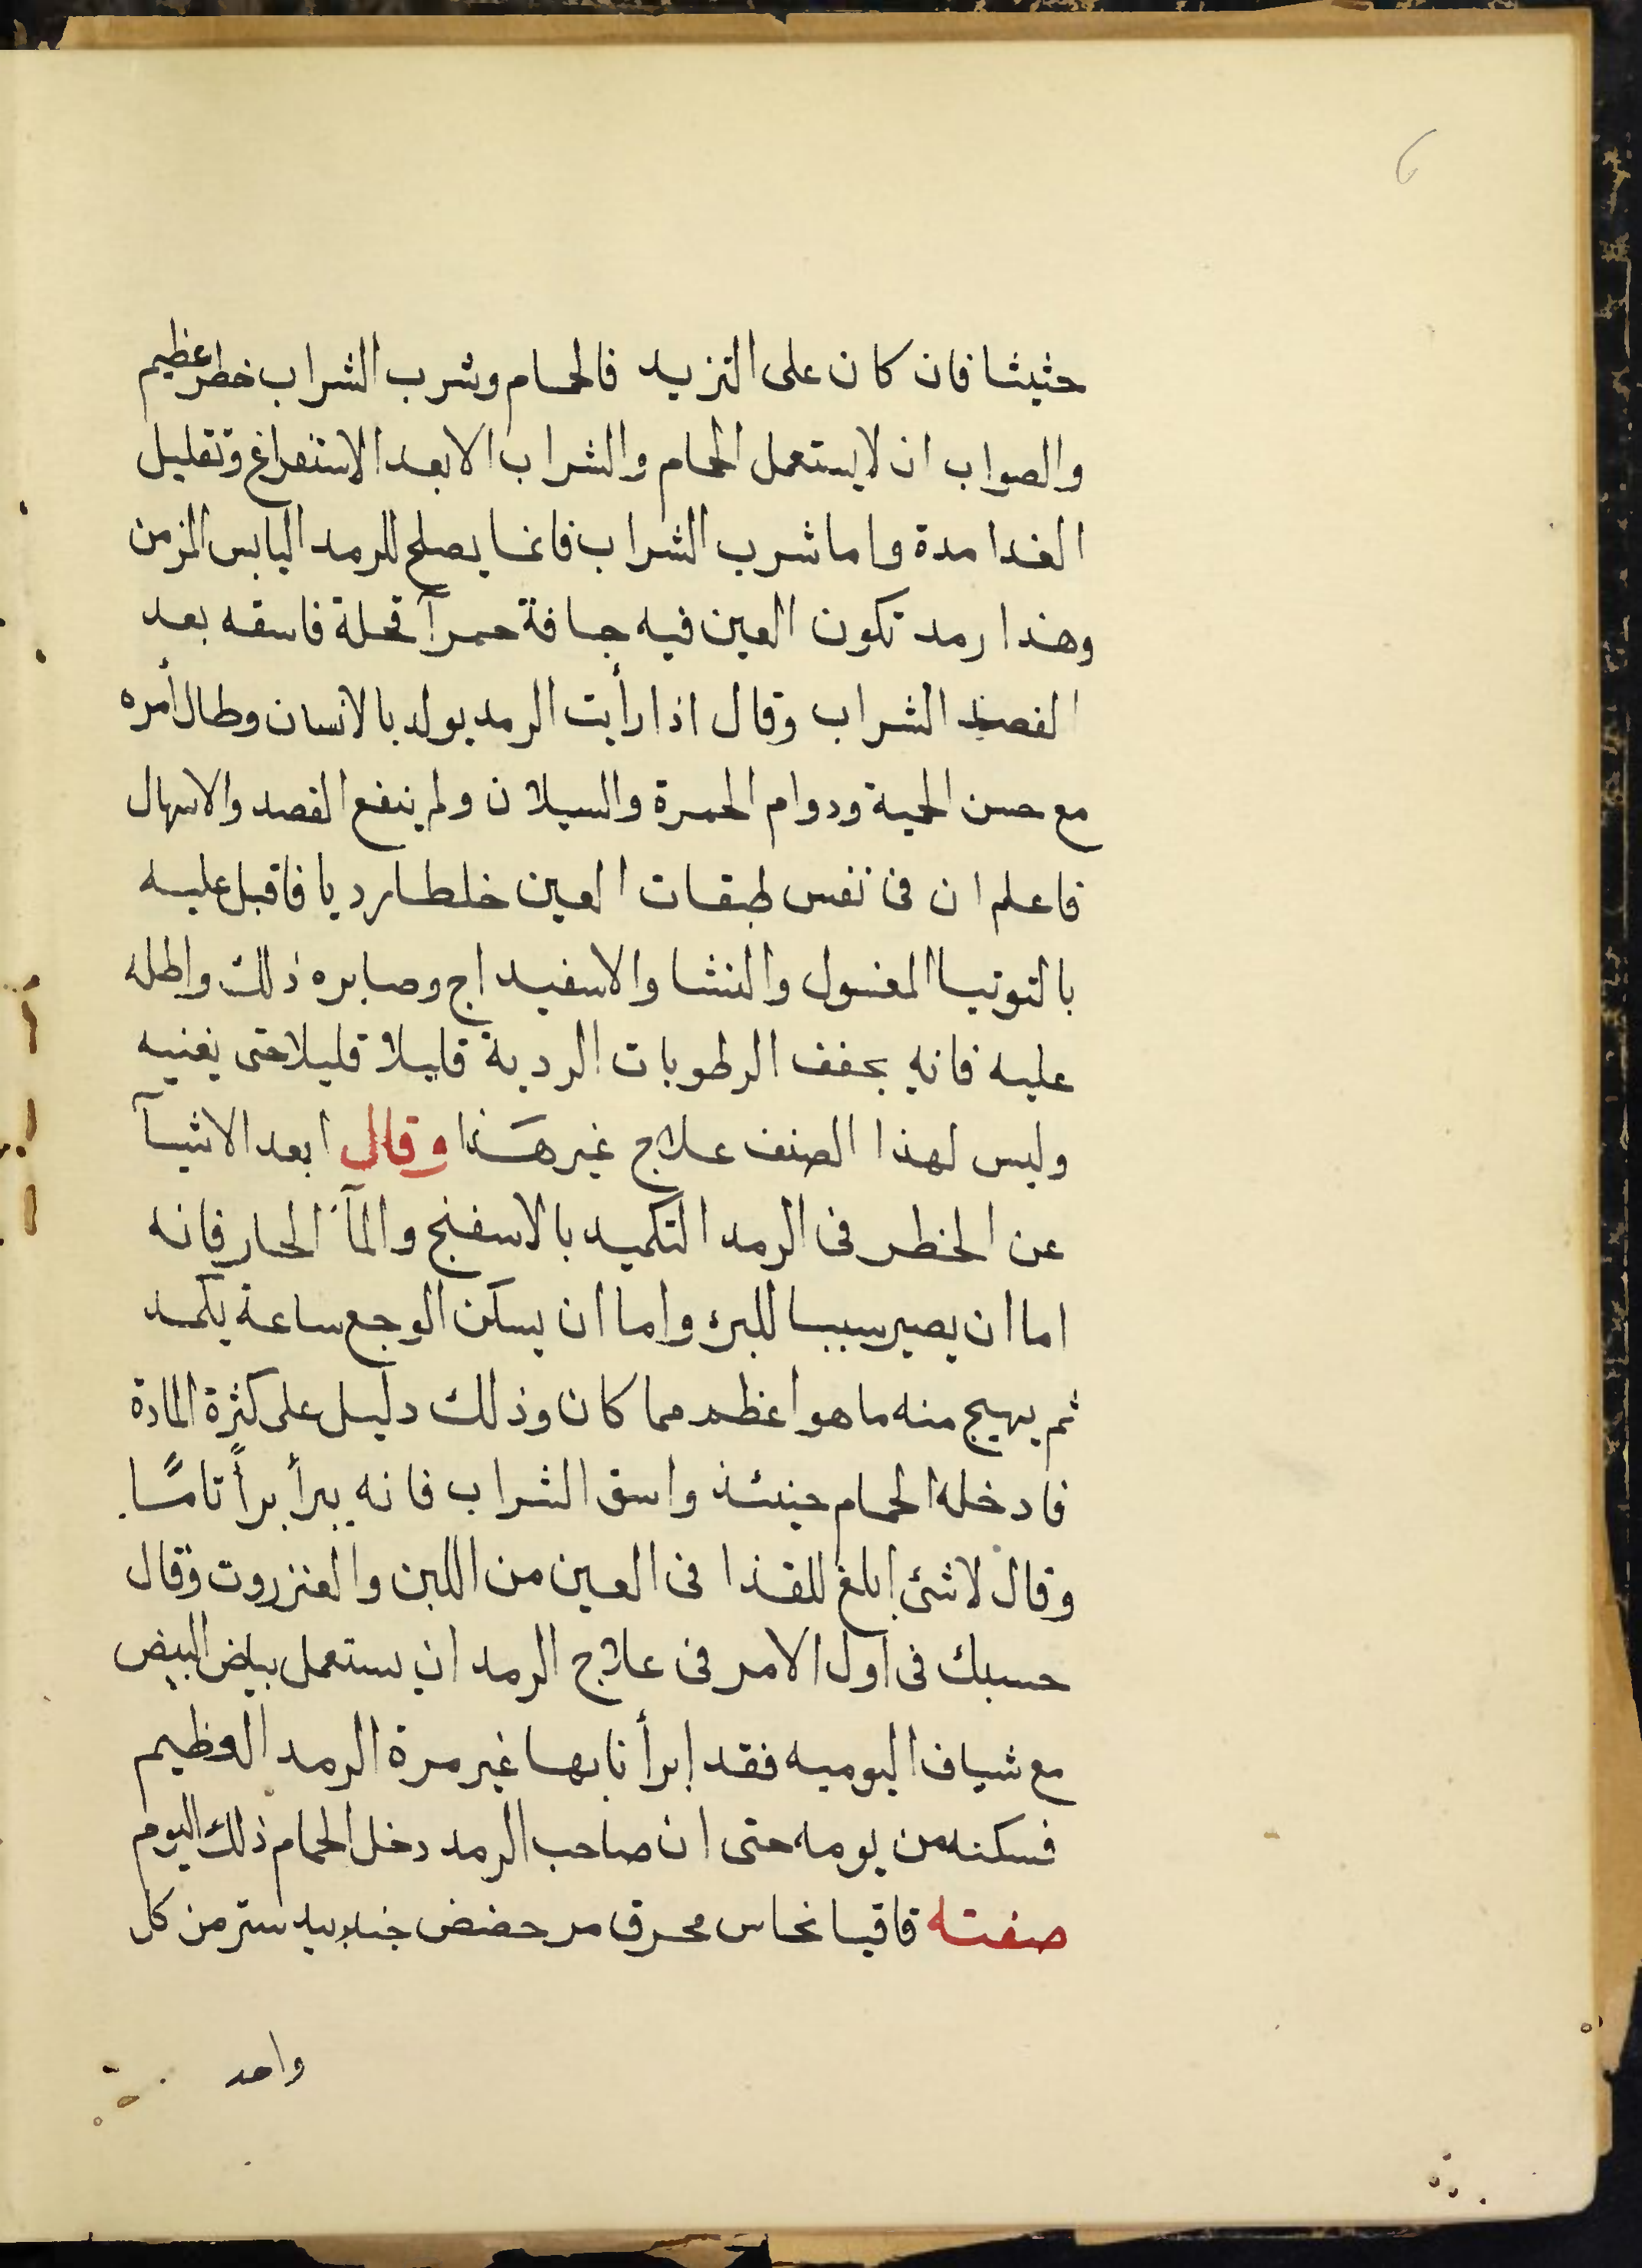 6
حثيثا فان كان على التزيد فالحمام وشرب الشراب خطر عظيم
والصواب ان لا يستعمل الحمام والشراب الا بعد الاستفراغ وتقليل
الغدا مدة واما شرب الشراب فانما يصلح للرمد اليابس المزمن
وهذا رمد تكون العين فيه جافة حمرآ قحلة فاسقه بعد
الفصد الشراب وقال اذا رأيت الرمد يولد بالانسان وطال أمره
مع حسن الحمية ودوام الحمرة والسيلان ولم ينفع الفصد والاسهال
فاعلم ان فى نفس طبقات العين خلطا رديا فاقبل عليه
بالتوتيا المغسول والنشا والاسفيداج وصابره ذلك واطله
عليه فانه يجفف الرطوبات الردية قليلا قليلا حتى يفنيه
وليس لهذا الصنف علاج غير هَذا وقال ابعد الاشيآ
عن الخطر فى الرمد التكميد بالاسفنج والمآ الحار فانه
اما ان يصير سببا للبرء واما ان يسكن الوجع ساعة يكمد
ثم يهيج منه ما هو اعظم مما كان وذلك دليل على كثرة المادة
فادخله الحمام حينئذ واسق الشراب فانه يبرأ برأً تامًا.
وقال لا شئ ابلغ للقذا فى العين من اللبن والعنزروت وقال
حسبك فى اول الامر فى علاج الرمد ان يستعمل بياض البيض
مع شياف اليوميه فقد ابرأنا بها غير مرة الرمد العظيم
فسكنه من يومه حتى ان صاحب الرمد دخل الحمام ذلك اليوم
صفته قاقيا نحاس محرق مر حضض جندبيدستر من كل
واحد